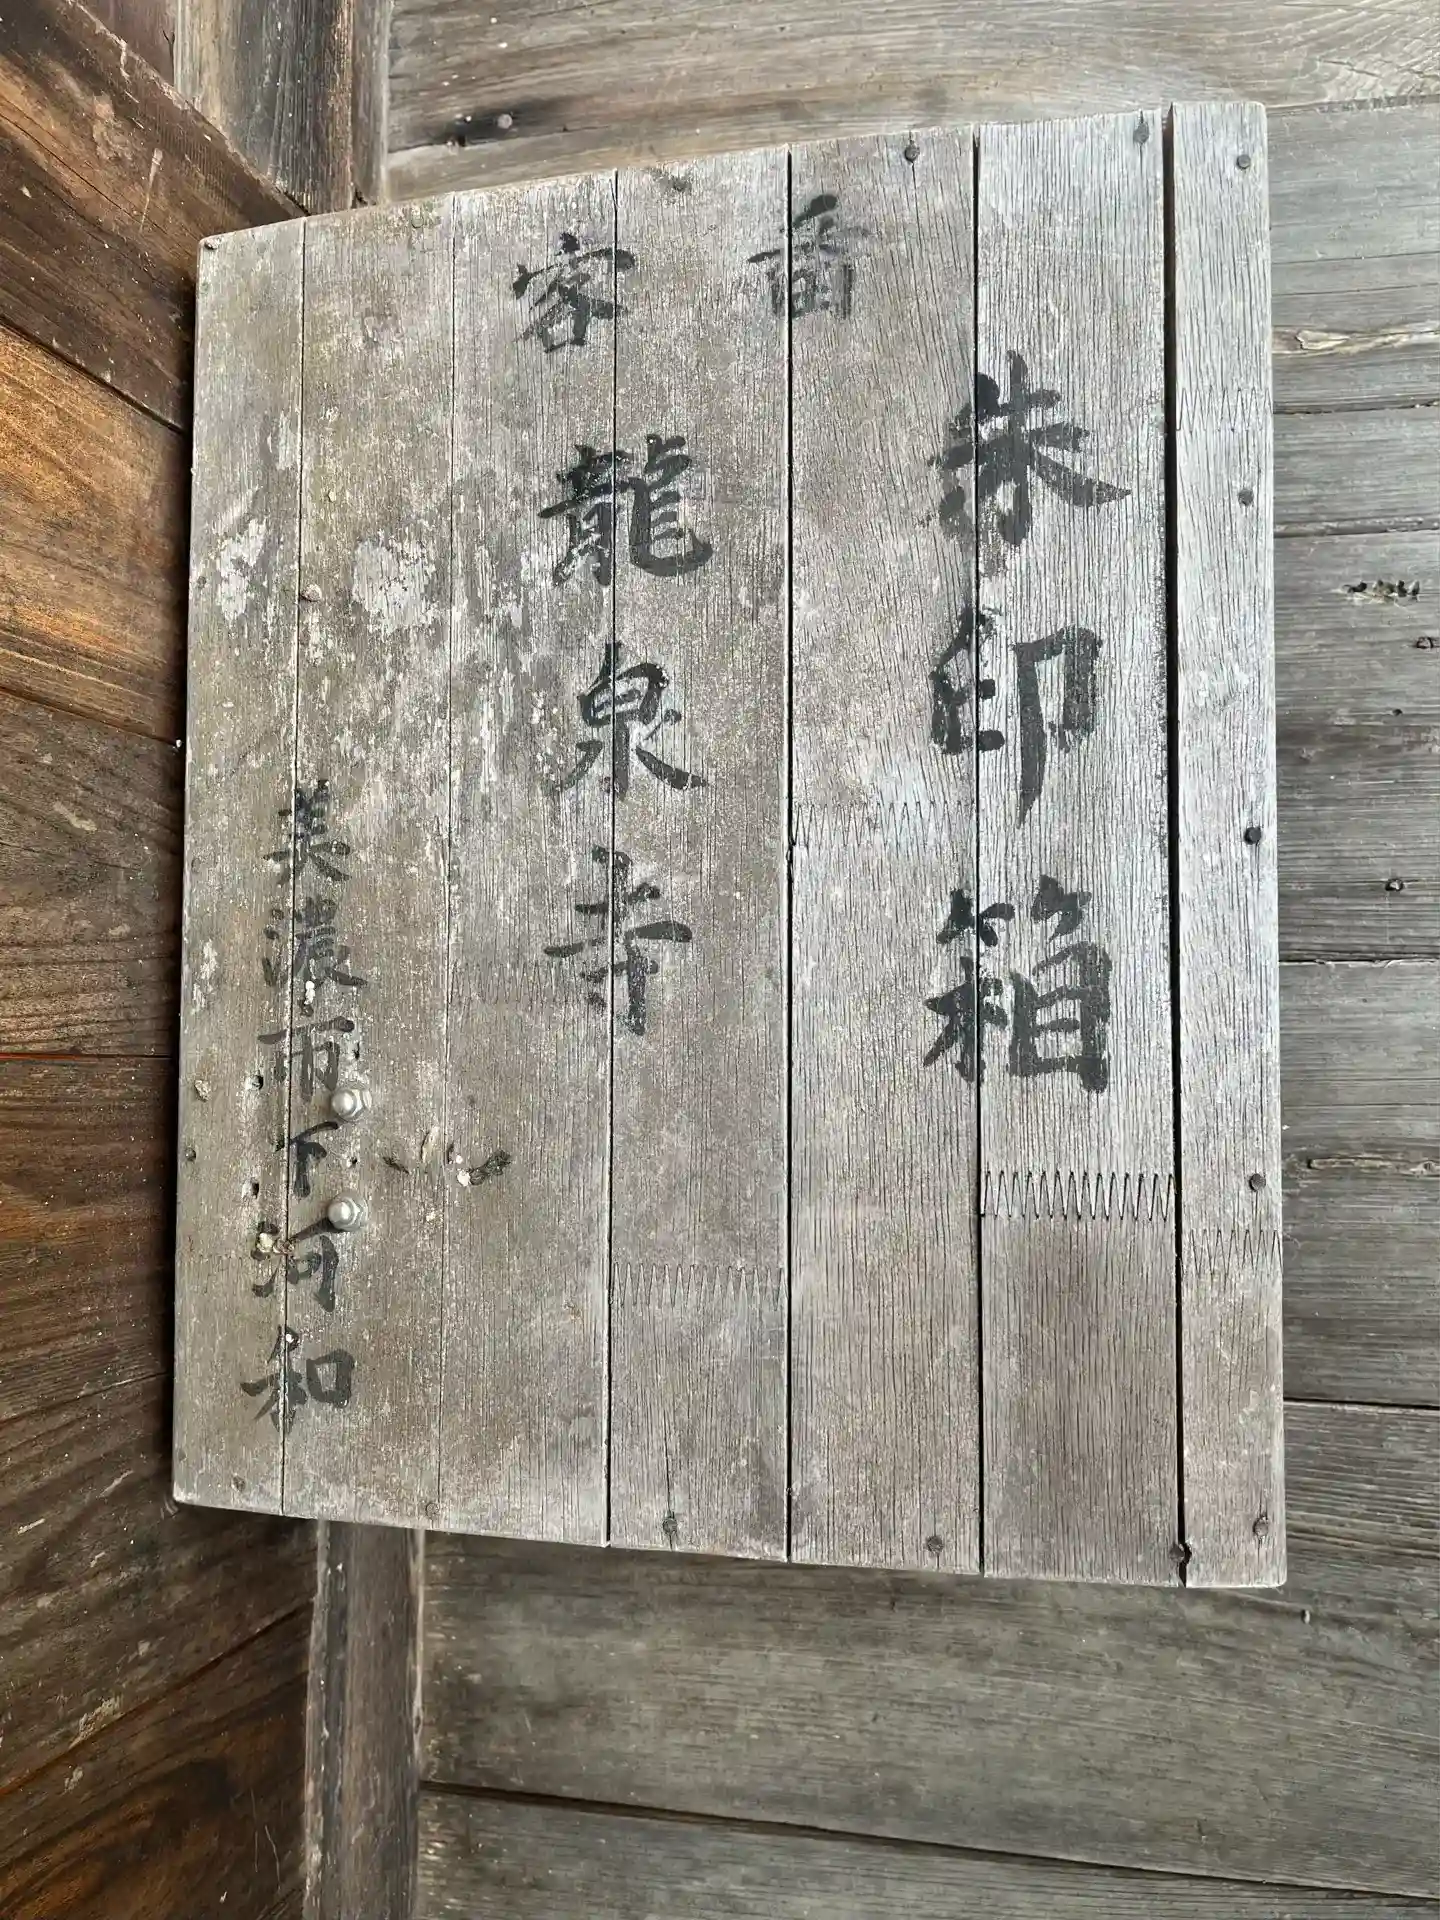 朱印箱
番客
龍泉寺
美濃市下河和